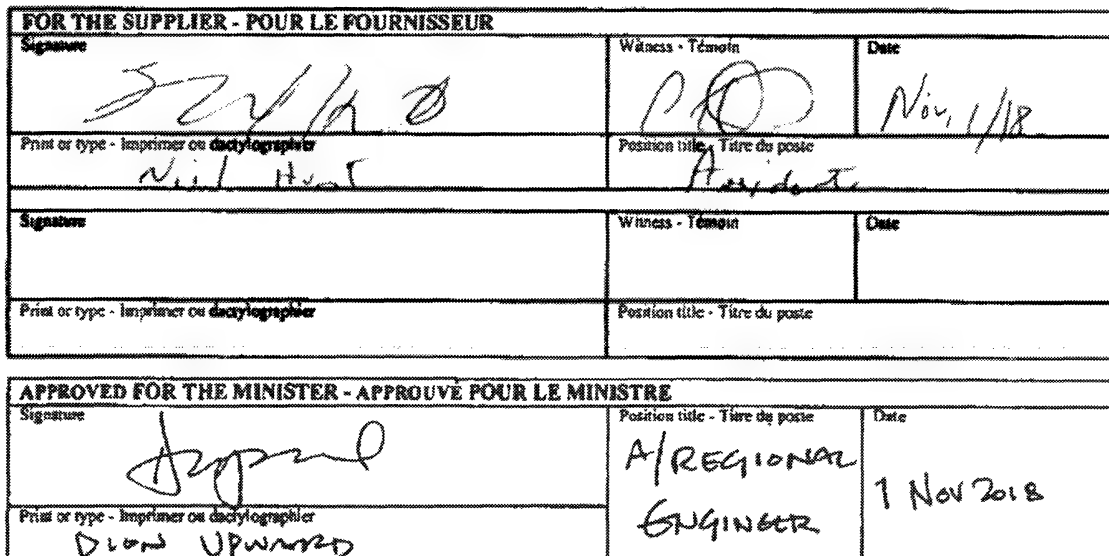 FOR THE SUPPLIER - POUR LE FOURNISSEUR
Signature Witness - Témoin Date
Nov, 1/18
Print or type - Imprimer ou dactylographier Position title - Titre du poste
Hunt
Signature Witness - Témoin Date
Print or type - Imprimer ou dactylographier Position title - Titre du poste
APPROVED FOR THE MINISTER - APPROUVÉ POUR LE MINISTRE
Signature Position title - Titre du poste Date
A/REGIONAL
ENGINEER 1 NOV 2018
Print or type - Imprimer ou dactylographier
DION UPWARD